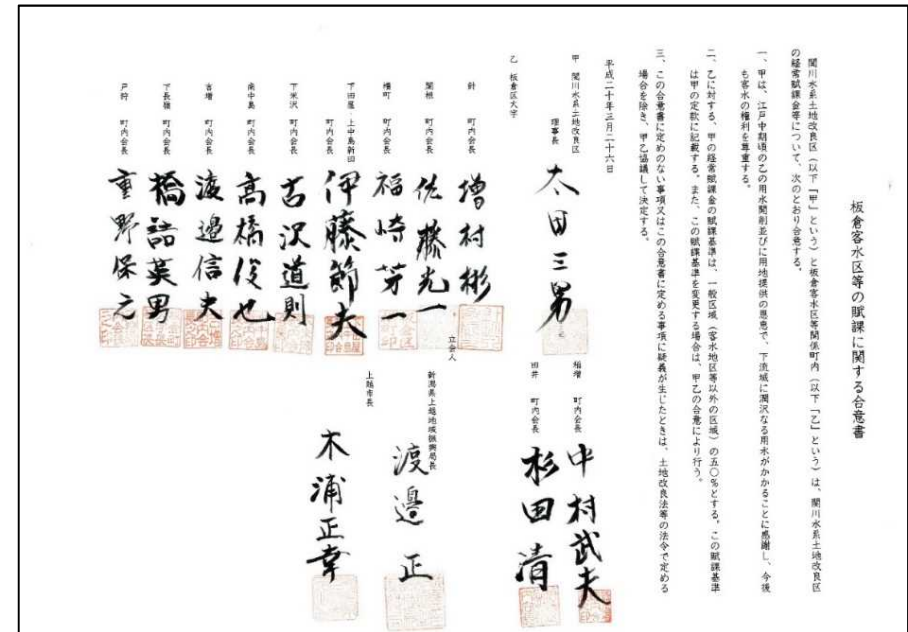 板倉客水区等の賦課に関する合意書
関川水系土地改良区（以下「甲」という）と板倉客水区等関係町内（以下「乙」という）は、関川水系土地改良区
の経常賦課金等について、次のとおり合意する。
一、甲は、江戸中期頃の乙の用水開削並びに用地提供の恩恵で、下流域に潤沢なる用水がかかることに感謝し、今後
も客水の権利を尊重する。
二、乙に対する、甲の経常賦課金の賦課基準は、一般区域（客水地区等以外の区域）の五〇％とする。この賦課基準
は甲の定款に記載する。また、この賦課基準を変更する場合は、甲乙の合意により行う。
三、この合意書に定めのない事項又はこの合意書に定める事項に疑義が生じたときは、土地改良法等の法令で定める
場合を除き、甲乙協議して決定する。
平成二十年三月二十六日
甲 関川水系土地改良区
理事長 太田三男
乙 板倉区大字
針 町内会長 増村彬
関根 町内会長 佐藤光一
横町 町内会長 福崎芳一
下田屋・上中島新田 町内会長 伊藤節夫
下米沢 町内会長 古沢道則
南中島 町内会長 高橋俊也
吉増 町内会長 渡邉信夫
下長嶺 町内会長 橋詰英男
戸狩 町内会長 重野保之
稲増 町内会長 中村武夫
田井 町内会長 杉田清
立会人
新潟県上越地域振興局長 渡邉正
上越市長 木浦正幸